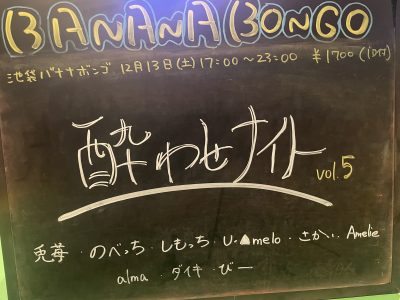 BANANA BONGO
池袋バナナボンゴ 12月13日(土) 17:00〜23:00 ¥1700(1D付)
酔わせナイト vol.5
兎苺・のべっち・しもっち・U・▲melo・さかい・Amelie
alma・ダイキ・びー